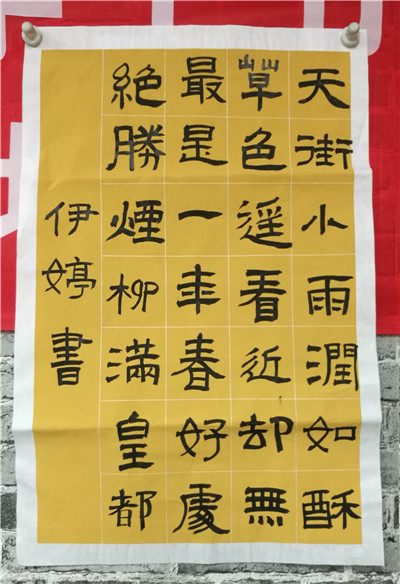 天街小雨潤如酥
草色遥看近却無
最是一年春好處
絶勝煙柳滿皇都
伊婷書